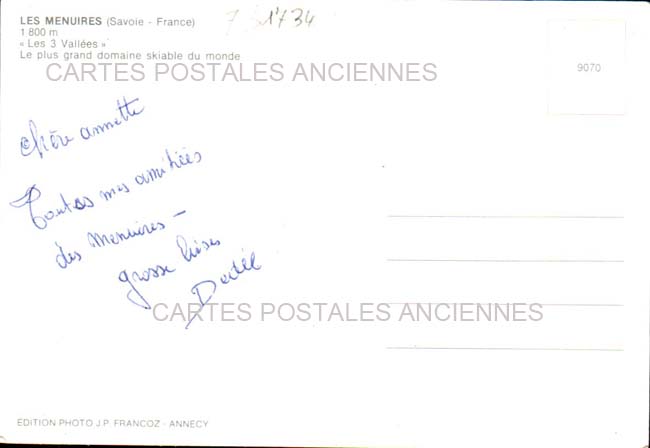 LES MENUIRES (Savoie - France)
1 800 m
« Les 3 Vallées »
Le plus grand domaine skiable du monde
1734
9070
CARTES POSTALES ANCIENNES
chère annette
Toutes mes amitiés
des Menuires -
grosse bises
CARTES POSTALES ANCIENNES
EDITION PHOTO J.P. FRANCOZ - ANNECY